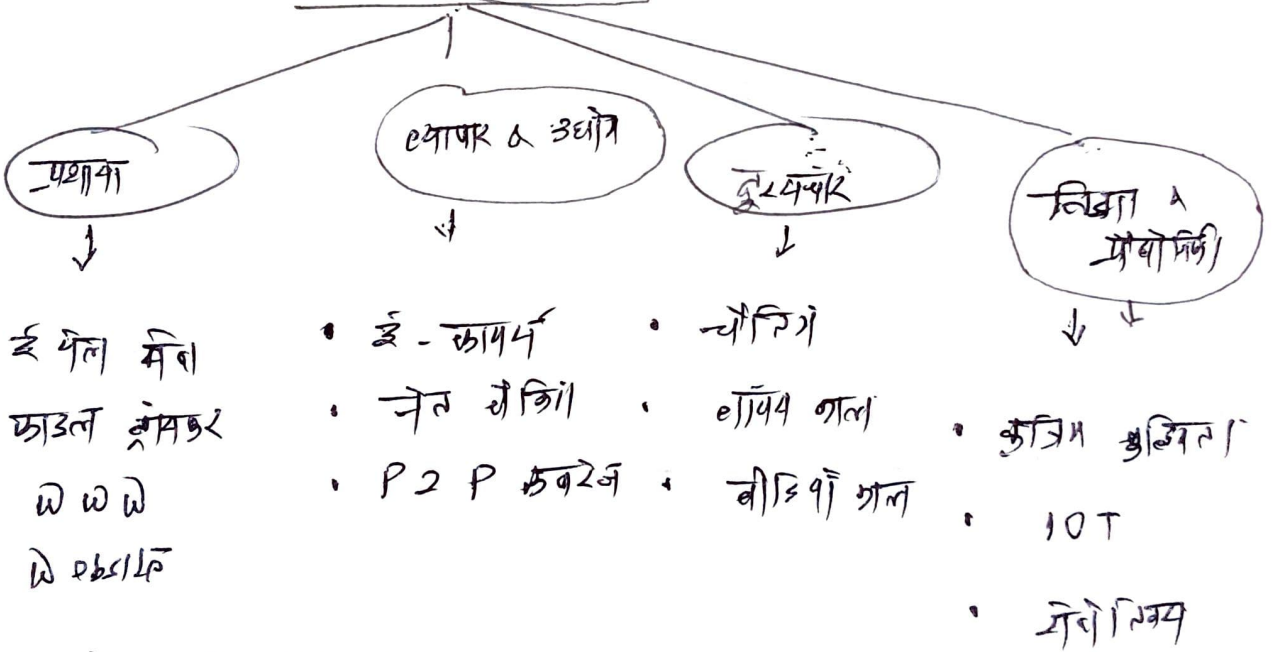 व्यापार & उद्योग
दूरसंचार
& प्रौद्योगिकी
ई मेल सेवा
फाइल ट्रांसफर
WWW
Website
• ई - कामर्स
• नेट बैंकिंग
• P2P
• चैटिंग
• वॉयस काल
• वीडियों काल
• कृत्रिम बुद्धिमता
• IOT
• रोबोटिक्स